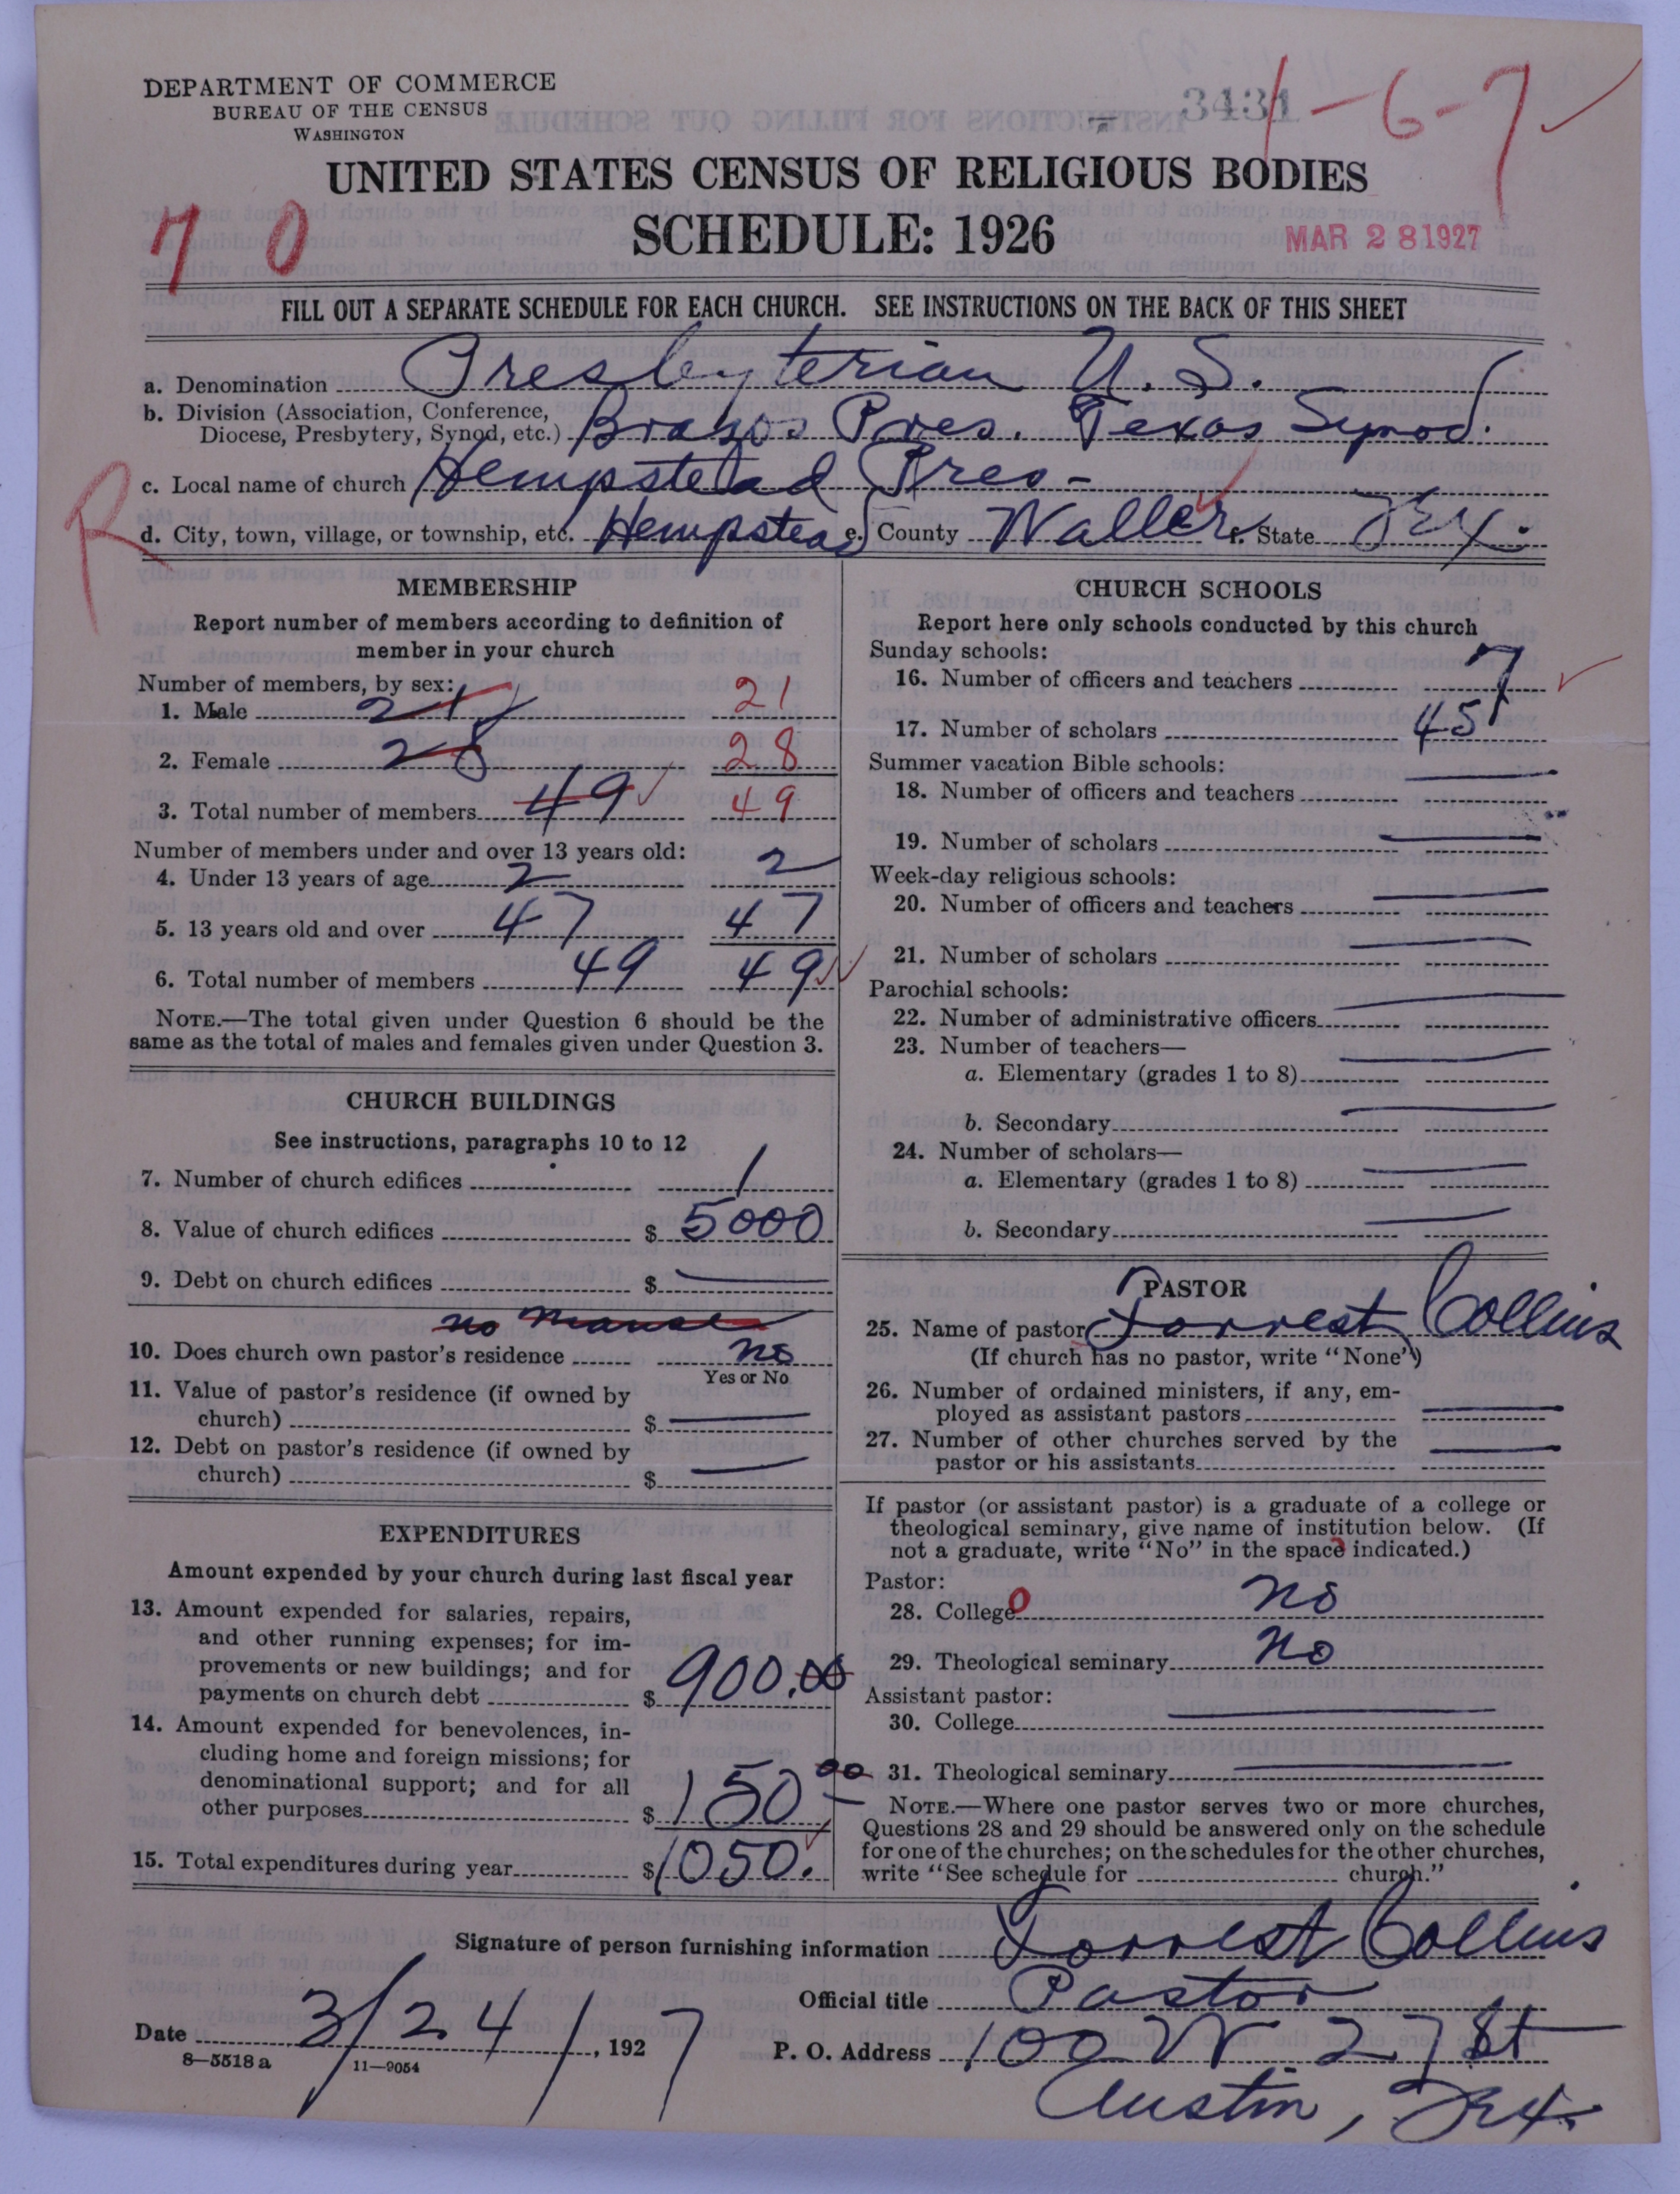 DEPARTMENT OF COMMERCE
BUREAU OF THE CENSUS
WASHINGTON
3431
1-6-7
UNITED STATES CENSUS OF RELIGIOUS BODIES
SCHEDULE: 1926
7 0
MAR 28 1927
FILL OUT A SEPARATE SCHEDULE FOR EACH CHURCH. SEE INSTRUCTIONS ON THE BACK OF THIS SHEET
a. Denomination Presbyterian U.S.
b. Division (Association, Conference,
Diocese, Presbytery, Synod, etc.) Brazos Pres. Texas Synod.
R
c. Local name of church Hempstead Pres-
d. City, town, village, or township, etc. Hempstead e. County Waller f. State Tex.
MEMBERSHIP
Report number of members according to definition of
member in your church
Number of members, by sex:
1. Male 21 21
2. Female 28 28
3. Total number of members 49 49
Number of members under and over 13 years old:
4. Under 13 years of age 2 2
5. 13 years old and over 47 47
6. Total number of members 49 49
NOTE.—The total given under Question 6 should be the
same as the total of males and females given under Question 3.
CHURCH BUILDINGS
See instructions, paragraphs 10 to 12
7. Number of church edifices 1
8. Value of church edifices $ 5000
9. Debt on church edifices $ —
no manse
10. Does church own pastor's residence no
Yes or No
11. Value of pastor's residence (if owned by
church) $ —
12. Debt on pastor's residence (if owned by
church) $ —
EXPENDITURES
Amount expended by your church during last fiscal year
13. Amount expended for salaries, repairs,
and other running expenses; for im-
provements or new buildings; and for
payments on church debt $ 900.00
14. Amount expended for benevolences, in-
cluding home and foreign missions; for
denominational support; and for all
other purposes $ 150 00
15. Total expenditures during year $ 1050.
CHURCH SCHOOLS
Report here only schools conducted by this church
Sunday schools:
16. Number of officers and teachers 7
17. Number of scholars 45
Summer vacation Bible schools:
18. Number of officers and teachers —
19. Number of scholars —
Week-day religious schools:
20. Number of officers and teachers —
21. Number of scholars —
Parochial schools:
22. Number of administrative officers —
23. Number of teachers—
a. Elementary (grades 1 to 8) —
b. Secondary —
24. Number of scholars—
a. Elementary (grades 1 to 8) —
b. Secondary —
PASTOR
25. Name of pastor Forrest Collins
(If church has no pastor, write "None")
26. Number of ordained ministers, if any, em-
ployed as assistant pastors —
27. Number of other churches served by the
pastor or his assistants —
If pastor (or assistant pastor) is a graduate of a college or
theological seminary, give name of institution below. (If
not a graduate, write "No" in the space indicated.)
Pastor:
28. College 0 no
29. Theological seminary no
Assistant pastor:
30. College —
31. Theological seminary —
NOTE.—Where one pastor serves two or more churches,
Questions 28 and 29 should be answered only on the schedule
for one of the churches; on the schedules for the other churches,
write "See schedule for church."
Signature of person furnishing information Forrest Collins
Official title Pastor
Date 3/24/, 1927
P. O. Address 100 W. 27 St
Austin, Tex.
8—5518a 11—9054